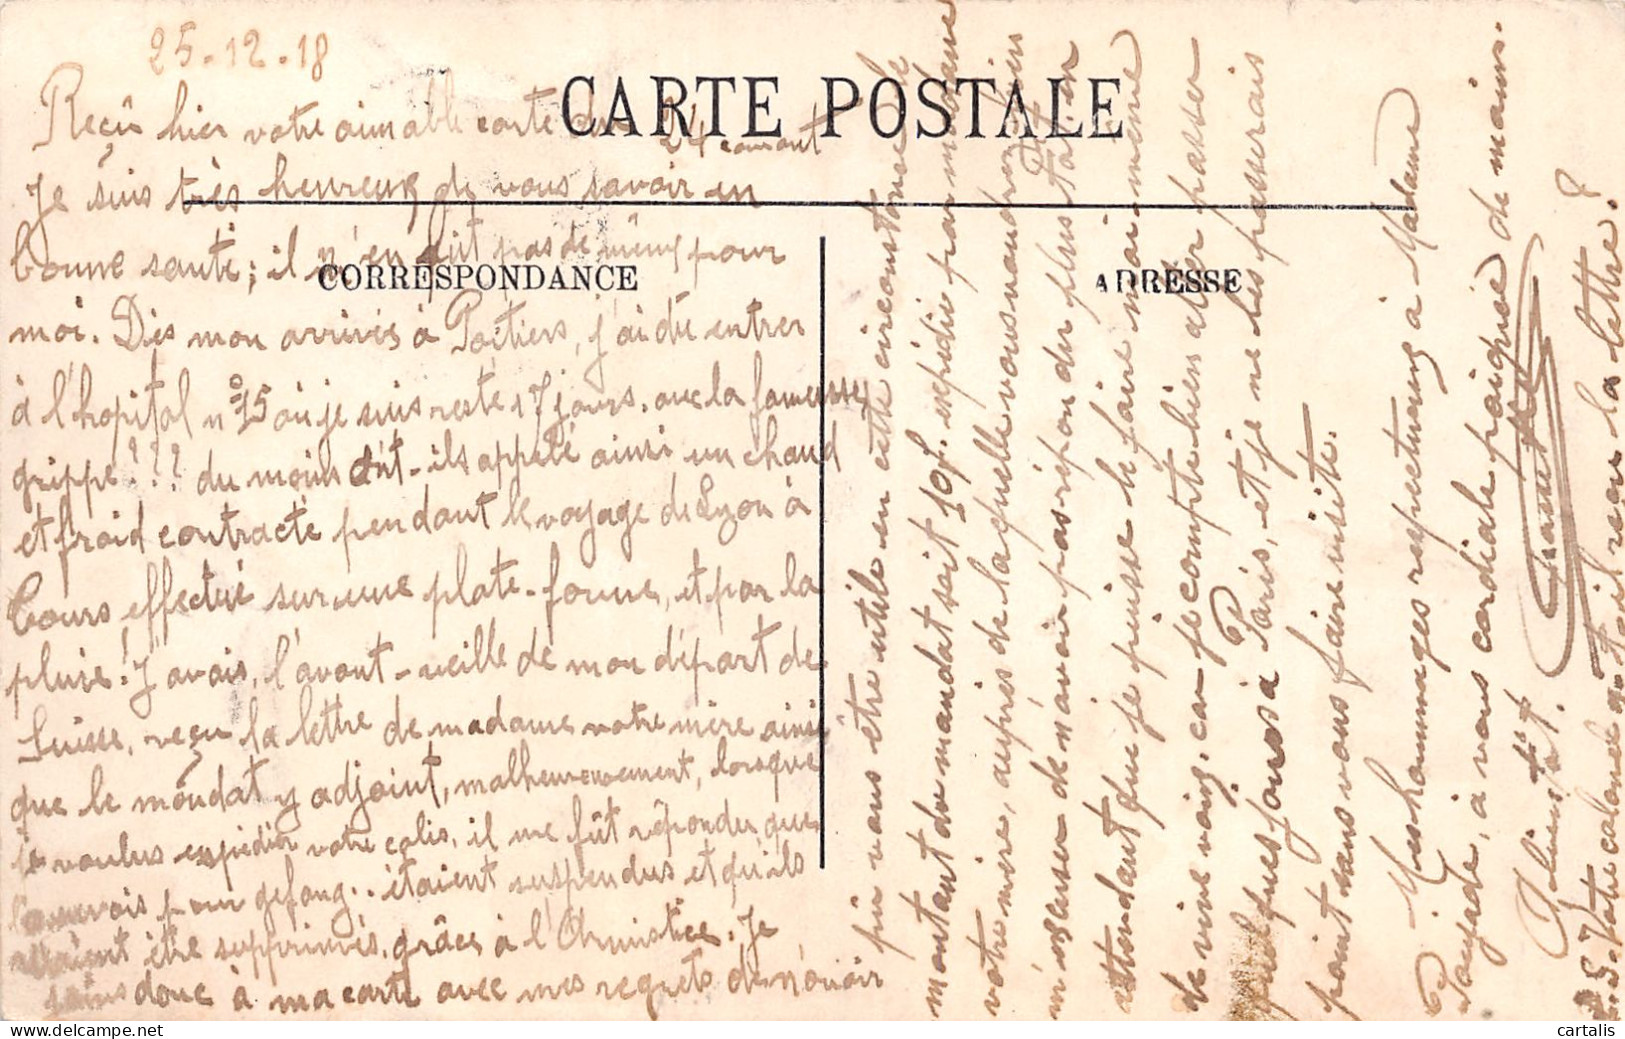 25.12.18
CARTE POSTALE
Reçu hier votre aimable carte du 24 courant
Je suis très heureux de vous savoir en
bonne santé; il n'en fût pas de même pour
CORRESPONDANCE
ADRESSE
moi. Dès mon arrivée à Poitiers, j'ai dû entrer
à l'hopital n° 15 où je suis resté 17 jours. avec la fameuse
grippe??? du moins ont-ils appelé ainsi un chaud
et froid contracté pendant le voyage de Lyon à
Tours effectué sur une plate-forme, et par la
pluie! J'avais, l'avant-veille de mon départ de
Suisse, reçu la lettre de madame votre mère ainsi
que le mandat y adjoint, malheureusement, lorsque
je voulus expédier votre colis, il me fût répondu que
envois pour gefang.. étaient suspendus et qu'ils
être supprimés, grâce à l'Armistice. Je
joins donc à ma carte avec mes regrets de n'avoir
pu vous être utile en cette circonstance le
montant du mandat soit 10f. expédié par madame
votre mère, auprès de laquelle vous voudrez bien
m'excuser de n'avoir pas répondu plus tôt en
attendant que je puisse le faire moi-même
de vive voix, car je compte bien aller passer
quelques jours à Paris, et je ne les passerais
point sans vous faire visite.
Mes hommages respectueux à Madame
Payrade, à vous cordiale poignée de mains.
P.S. Votre colonel a-t-il reçu la lettre?
cartalis